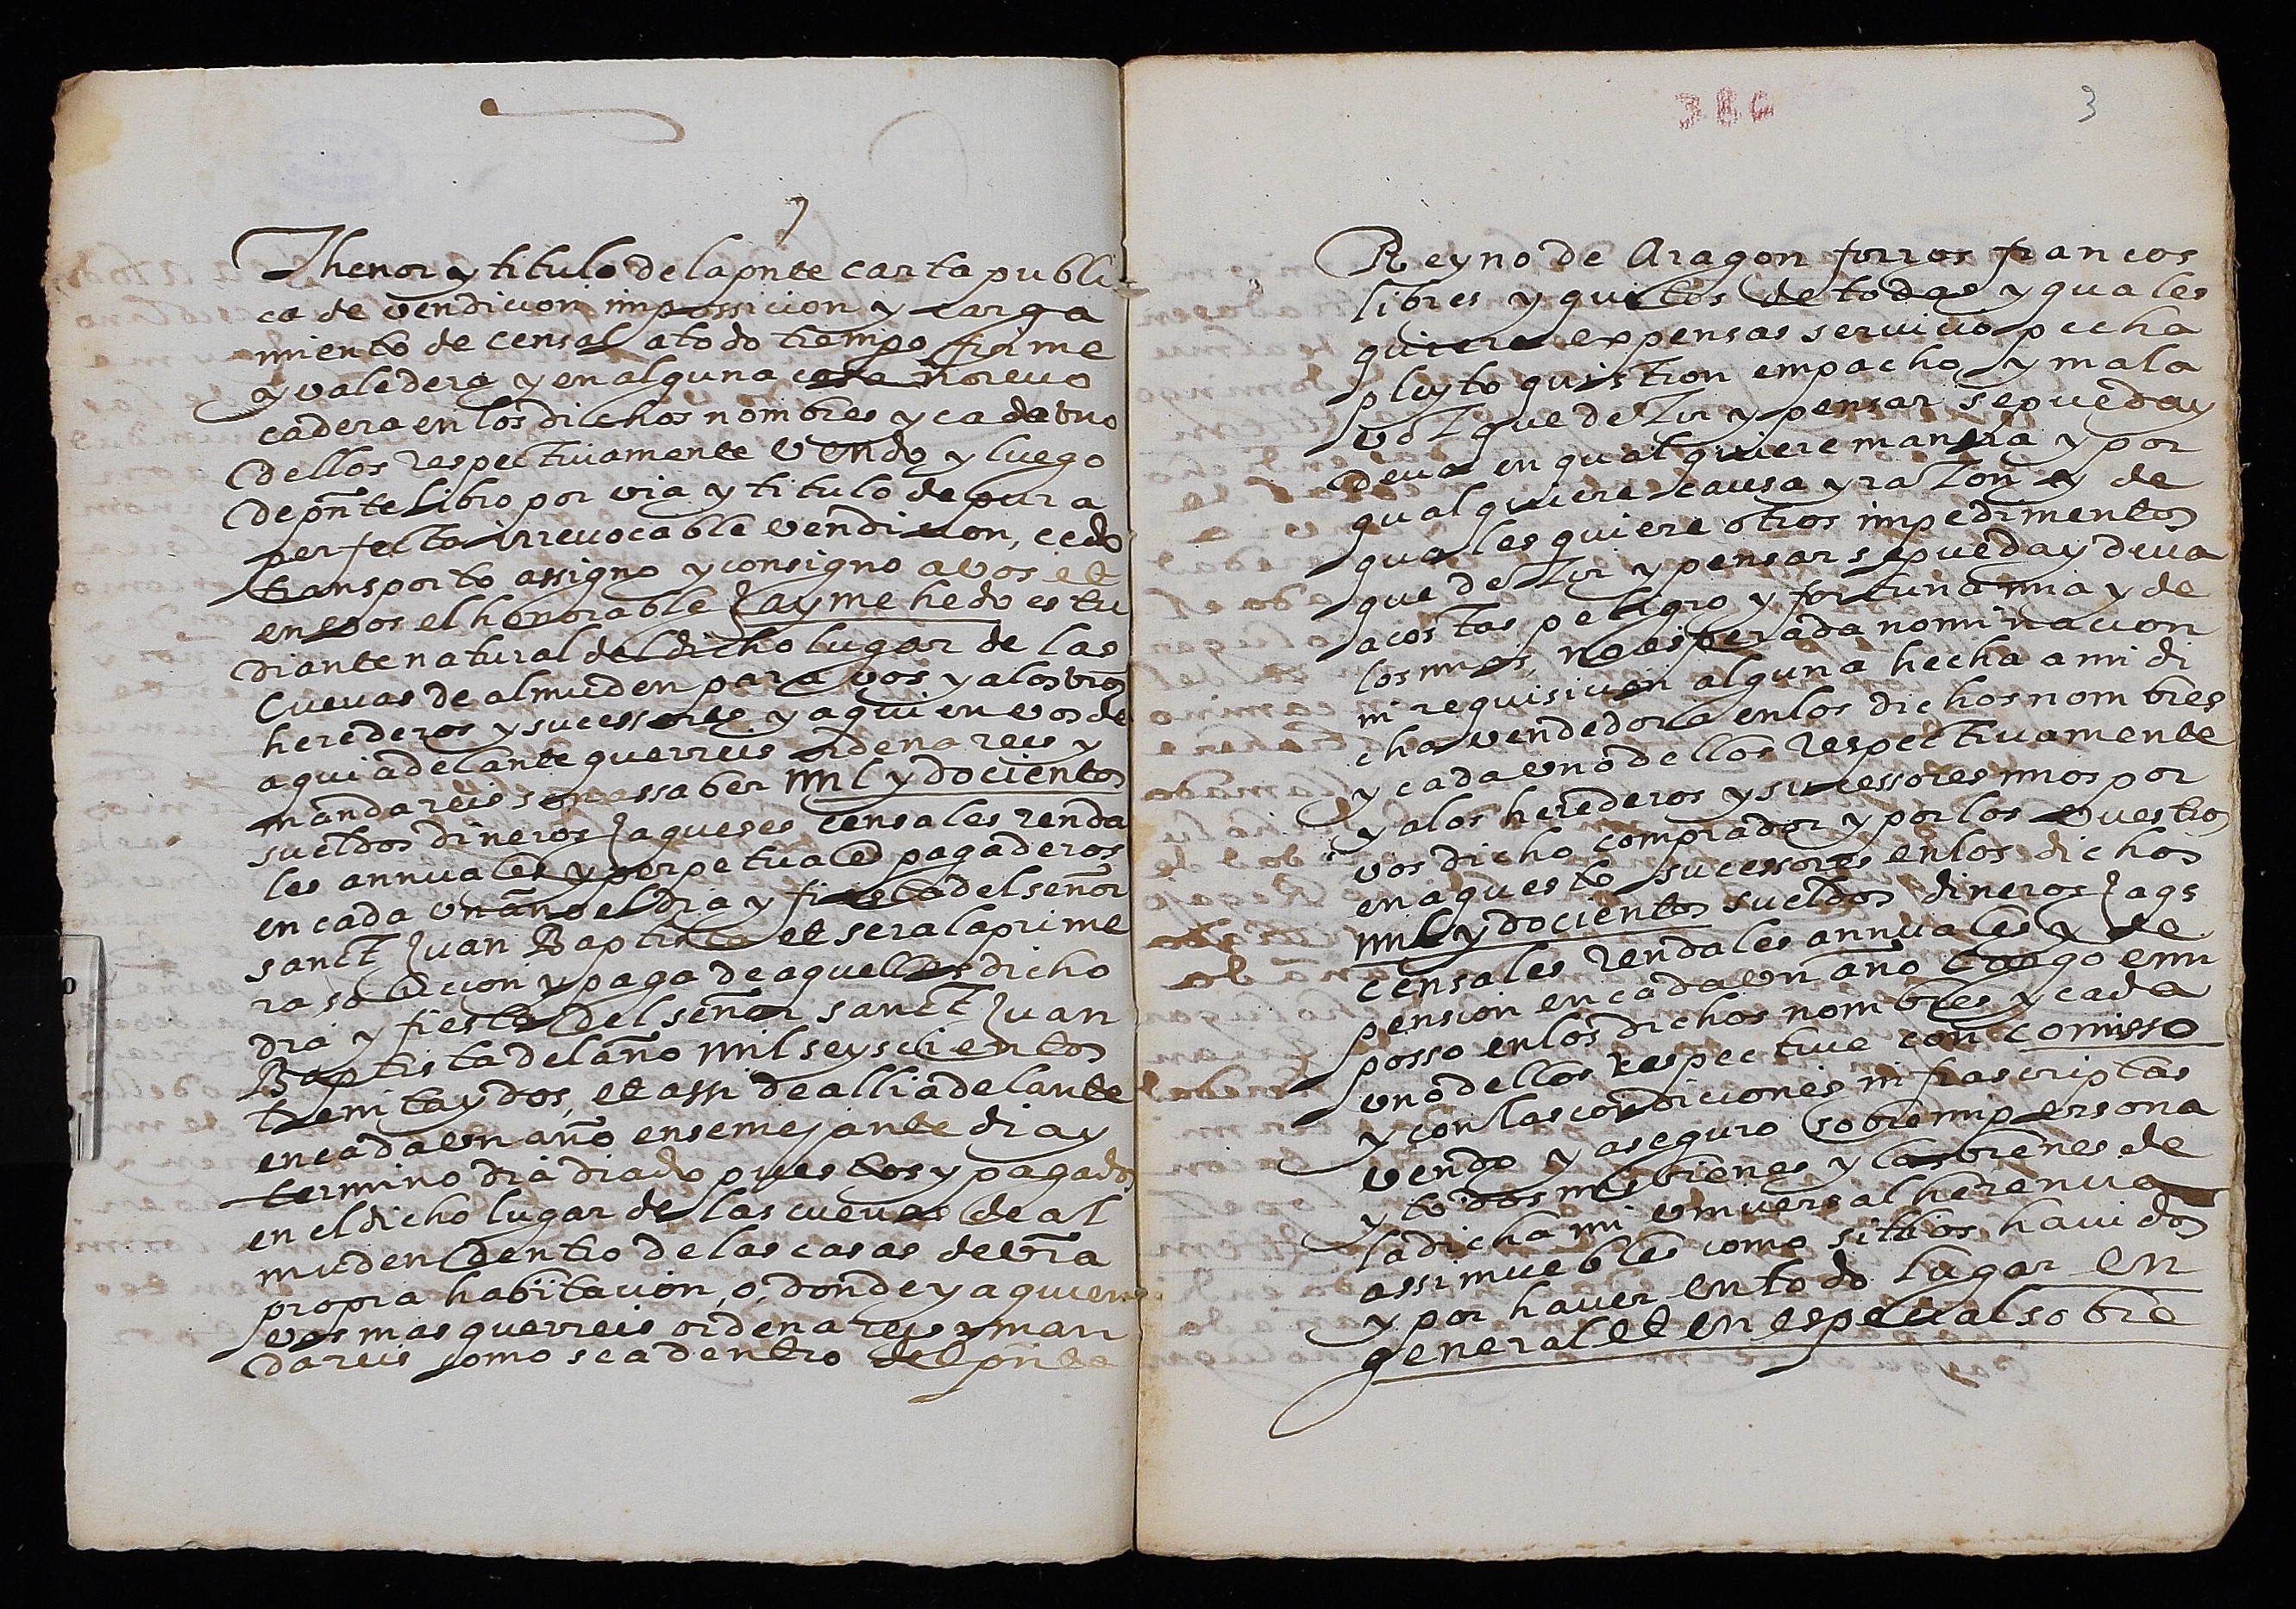 Thenor y titulo de la pnte carta publi-
ca de vendicion imposicion y carga
miento de censal a todo tiempo firme
y valedera y en alguna cosa no revo
cadera en los dichos nombres y cada vno
dellos respectivamente vendo y luego
de pnte libro por via y titulo de pura
perfecta irrevocable vendicion, cedo
transporto assigno y consigno a vos et
en vos el honorable Jayme hedo estu
diante natural del dicho lugar de las
Cuevas de almuden para vos y a los vros
herederos y sucessores y a quien vos de
aqui adelante querreis ordenareis y
mandareis son assaber mil y docientos
sueldos dineros Jaqueses censales renda
les annuales y perpetuales pagaderos
en cada vn año el dia y fiesta del señor
sanct Juan Baptista et sera la prime
ra solucion y paga de aquellos dicho
dia y fiesta del señor sanct Juan
Baptista del año mil seyscientos
trenita y dos, et assi de alli adelante
en cada vn año en semejante dia y
termino dia diado puestos y pagados
en el dicho lugar de las cuevas de al
muden dentro de las casas de vra
propria habitacion, o, donde y a quien
vos mas querreis ordenareis y man
dareis como sea dentro del pnte
386
3
Reyno de Aragon forros francos
libres y quitos de todas y quales
quiere expensas servicio pecha
pleyto quistion empacho, y mala
voz que dezir y pensar se pueda y
deva en qualquiere manera y por
qualquiere causa y razon y de
quales quiere otros impedimentos
que dezir y pensar se pueda y deva
a costas peligro y fortuna mia y de
los mios, no esperada nominacion
ni requisicion alguna hecha a mi di
cha vendedora en los dichos nombres
y cada vno dellos respectivamente
y a los herederos y sucessores mios por
vos dicho comprador y por los vuestros
en aquesto sucessores en los dichos
mil y docientos sueldos dineros Jaqs
censales rendales annuales y de
pension en cada vn año los que o em
posso en los dichos nombres y cada
vno dellos respective con comisso
y con las condiciones infrascriptas
vendo y aseguro sobre mi persona
y todos mis bienes y los bienes de
la dicha mi vniversal herencia
assi muebles como sitios havidos
y por haver en todo lugar en
general et en especial sobre